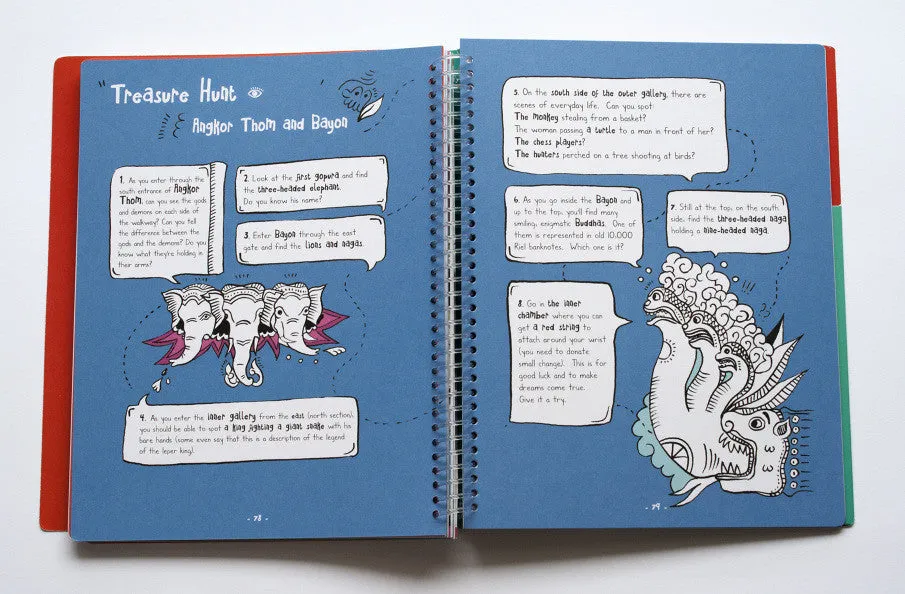 Treasure Hunt
Angkor Thom and Bayon
1. As you enter through the
south entrance of Angkor
Thom, can you see the gods
and demons on each side of
the walkway? Can you tell
the difference between the
gods and the demons? Do you
know what they're holding in
their arms?
2. Look at the first gopura and find
the three-headed elephant.
Do you know his name?
3. Enter Bayon through the east
gate and find the lions and nagas.
4. As you enter the inner gallery from the east (north section),
you should be able to spot a king fighting a giant snake with his
bare hands (some even say that this is a description of the legend
of the leper king).
- 78 -
5. On the south side of the outer gallery, there are
scenes of everyday life. Can you spot:
The monkey stealing from a basket?
The woman passing a turtle to a man in front of her?
The chess players?
The hunters perched on a tree shooting at birds?
6. As you go inside the Bayon and
up to the top, you'll find many
smiling, enigmatic Buddhas. One of
them is represented in old 10,000
Riel banknotes. Which one is it?
7. Still at the top, on the south
side, find the three-headed naga
holding a nine-headed naga.
8. Go in the inner
chamber where you can
get a red string to
attach around your wrist
(you need to donate
small change). This is for
good luck and to make
dreams come true.
Give it a try.
- 79 -